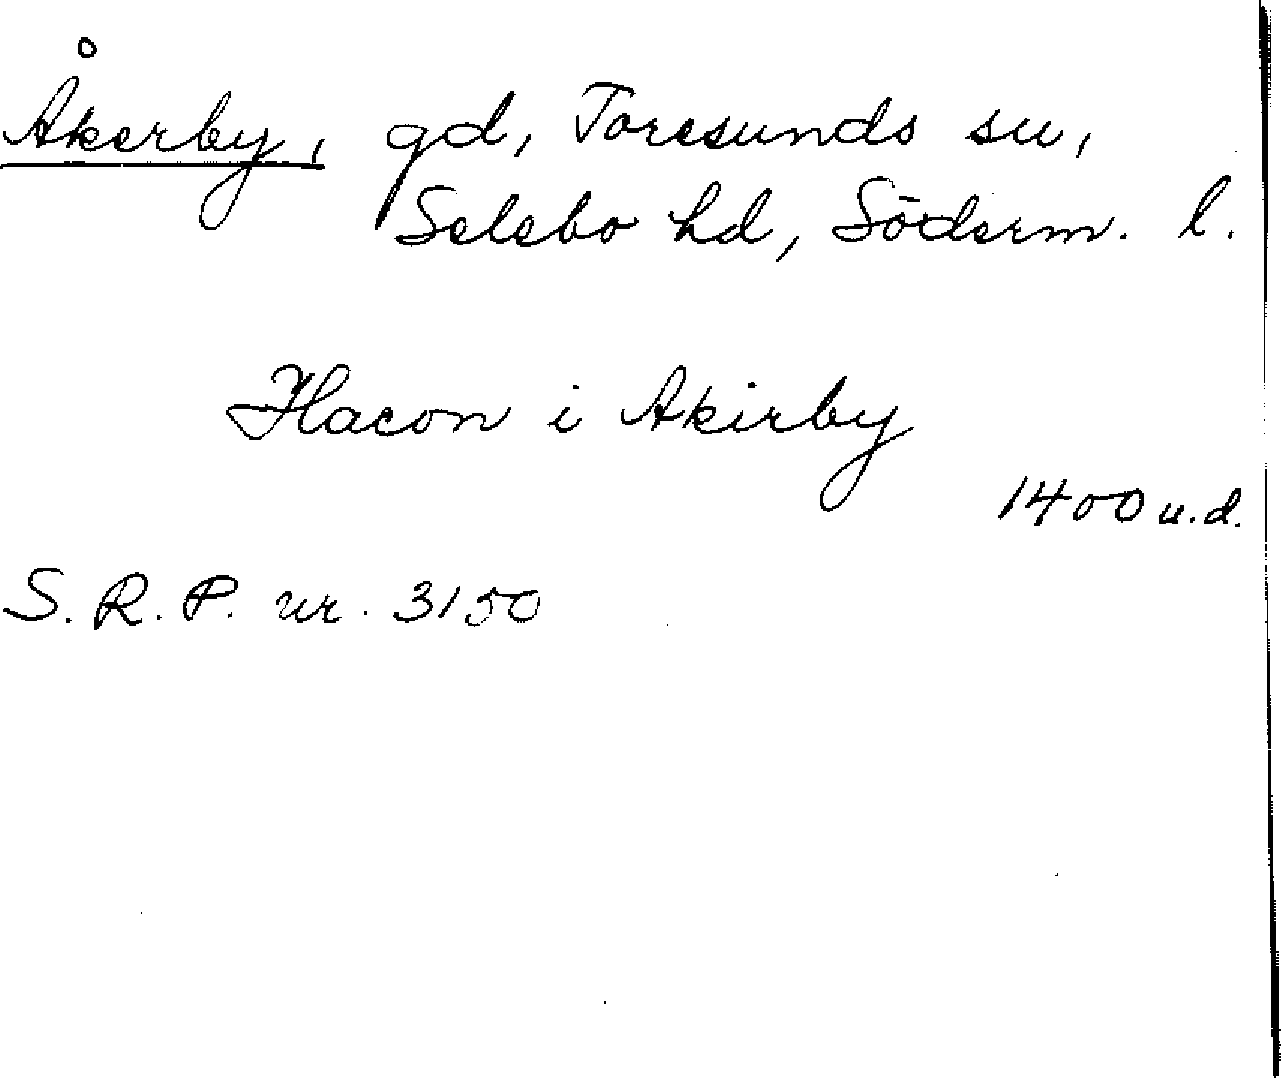 Åkerby, gd, Toresunds sn,
Selebo hd, Söderm. l.
Hacon i Akirby
1400 u.d.
S. R. P. nr. 3150